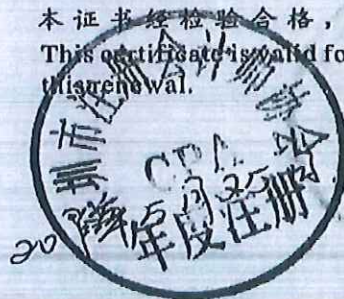 本证书经检验合格，
This certificate is valid fo
this renewal.
圳市注册会计师协会
CPA
年度注册